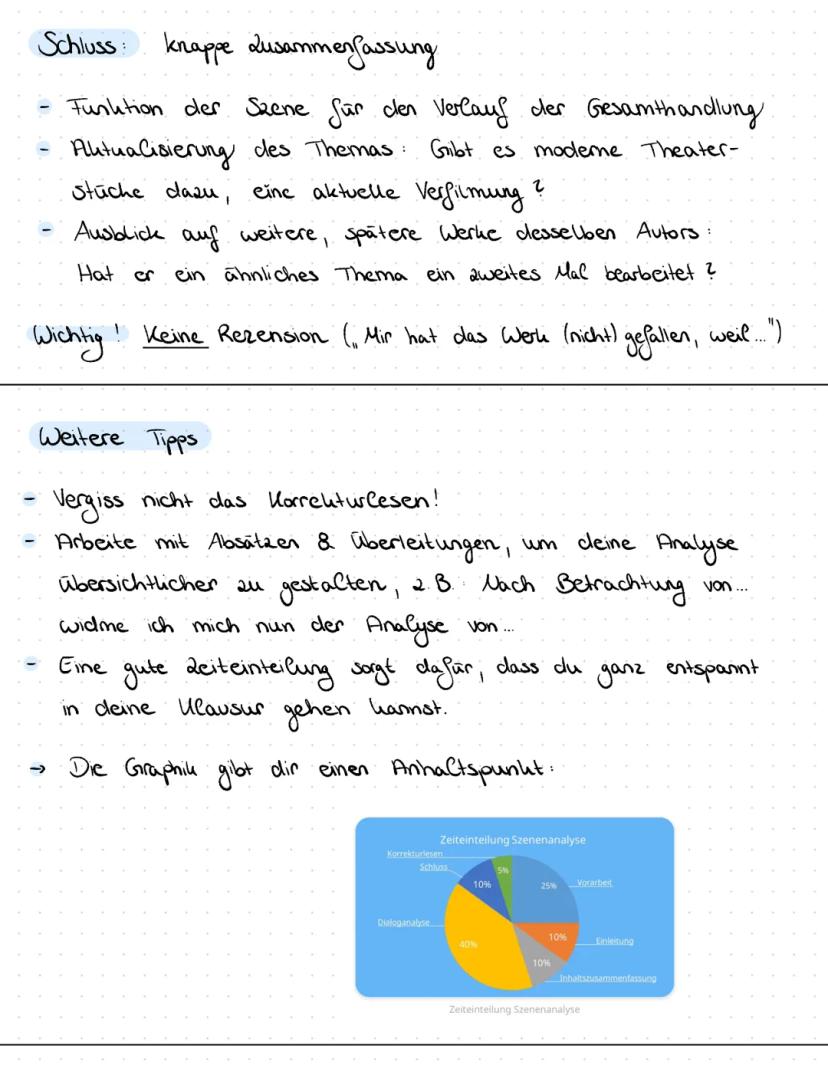 Schluss: knappe Zusammenfassung
- Funktion der Szene für den Verlauf der Gesamthandlung
- Aktualisierung des Themas: Gibt es moderne Theater-
stücke dazu, eine aktuelle Verfilmung?
- Ausblick auf weitere, spätere Werke desselben Autors:
Hat er ein ähnliches Thema ein zweites Mal bearbeitet?
Wichtig! Keine Rezension („Mir hat das Werk (nicht) gefallen, weil...")
Weitere Tipps
- Vergiss nicht das Korrekturlesen!
- Arbeite mit Absätzen & Überleitungen, um deine Analyse
übersichtlicher zu gestalten, z.B.: Nach Betrachtung von...
widme ich mich nun der Analyse von...
- Eine gute Zeiteinteilung sorgt dafür, dass du ganz entspannt
in deine Klausur gehen kannst.
→ Die Graphik gibt dir einen Anhaltspunkt:
Zeiteinteilung Szenenanalyse
Korrekturlesen
5%
Schluss
10%
25%
Vorarbeit
Dialoganalyse
40%
10%
Einleitung
10%
Inhaltszusammenfassung
Zeiteinteilung Szenenanalyse